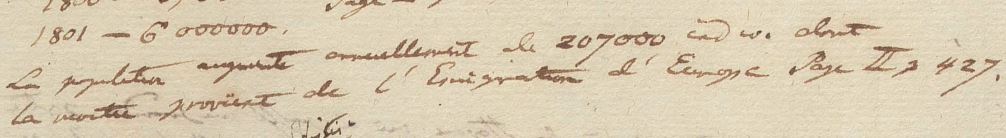 Page
1801 – 6 000000.
La population augmente annuellement de 207000 indiv. dont
la moitié provient de l'Emigration d'Europe Page II p 427.